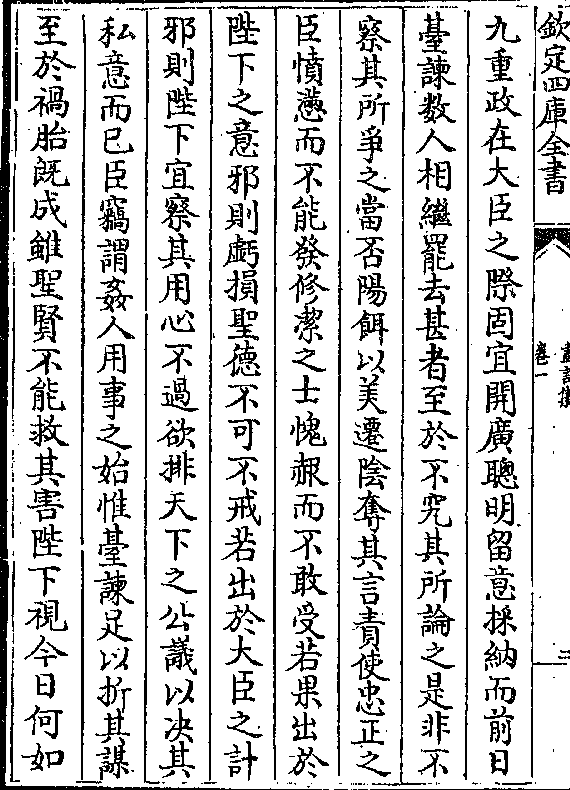 欽定四庫全書
卷一
九重政在大臣之際固宜開廣聰明留意採納而前日
臺諫数人相繼罷去甚者至於不究其所論之是非不
察其所爭之當否陽餌以美遷陰奪其言責使忠正之
臣憤懣而不能發修潔之士愧赧而不敢受若果出於
陛下之意邪則虧損聖德不可不戒若出於大臣之計
邪則陛下宜察其用心不過欲排天下之公議以决其
私意而已臣竊謂姦人用事之始惟臺諫足以折其謀
至於禍胎既成雖聖賢不能救其害陛下視今日何如